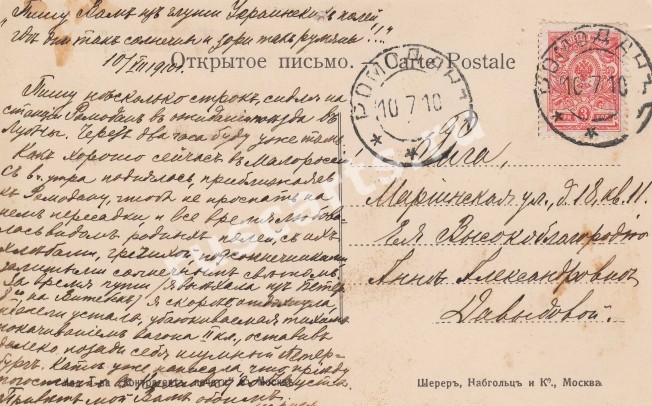 "Пишу Вамъ изъ глуши Украинскихъ полей
Гдѣ дни такъ солнечны и зори такъ румяны!.."
10/VII 1910 г.
Открытое письмо. — Carte Postale
Пишу нѣсколько строкъ, сидя на
станціи Ромоданъ въ ожиданіи поѣзда въ
Лубны. Черезъ два часа буду уже тамъ.
Какъ хорошо сейчасъ въ Малороссіи!
Съ утра поднялась, приближаясь
къ Ромодану, чтобъ не проспать на
немъ пересадки и все время любова-
лась видомъ родныхъ полей, съ ихъ
хлѣбами, гречихой, подсолнечниками
залитыми солнечнымъ свѣтомъ.
За время пути (выѣхала изъ Петер-
на Витебскъ) я скоро отдохнула
устала, убаюкиваемая тихимъ
покачиваніемъ вагона II кл., оставивъ
далеко позади себя шумный Петер-
бургъ. Катѣ уже написала, что пріѣду
погостить
Привѣтъ мой Вамъ обоимъ.
РОМОДАНЪ
10 7 10
РОМОДАНЪ
10 7 10
Рига,
Маріинская ул., д. 18, кв. 11.
Ея Высокоблагородію
Аннѣ Александровнѣ
Давыдовой.
Контрагентство печати
Москва
Шереръ, Набгольцъ и Ко., Москва.